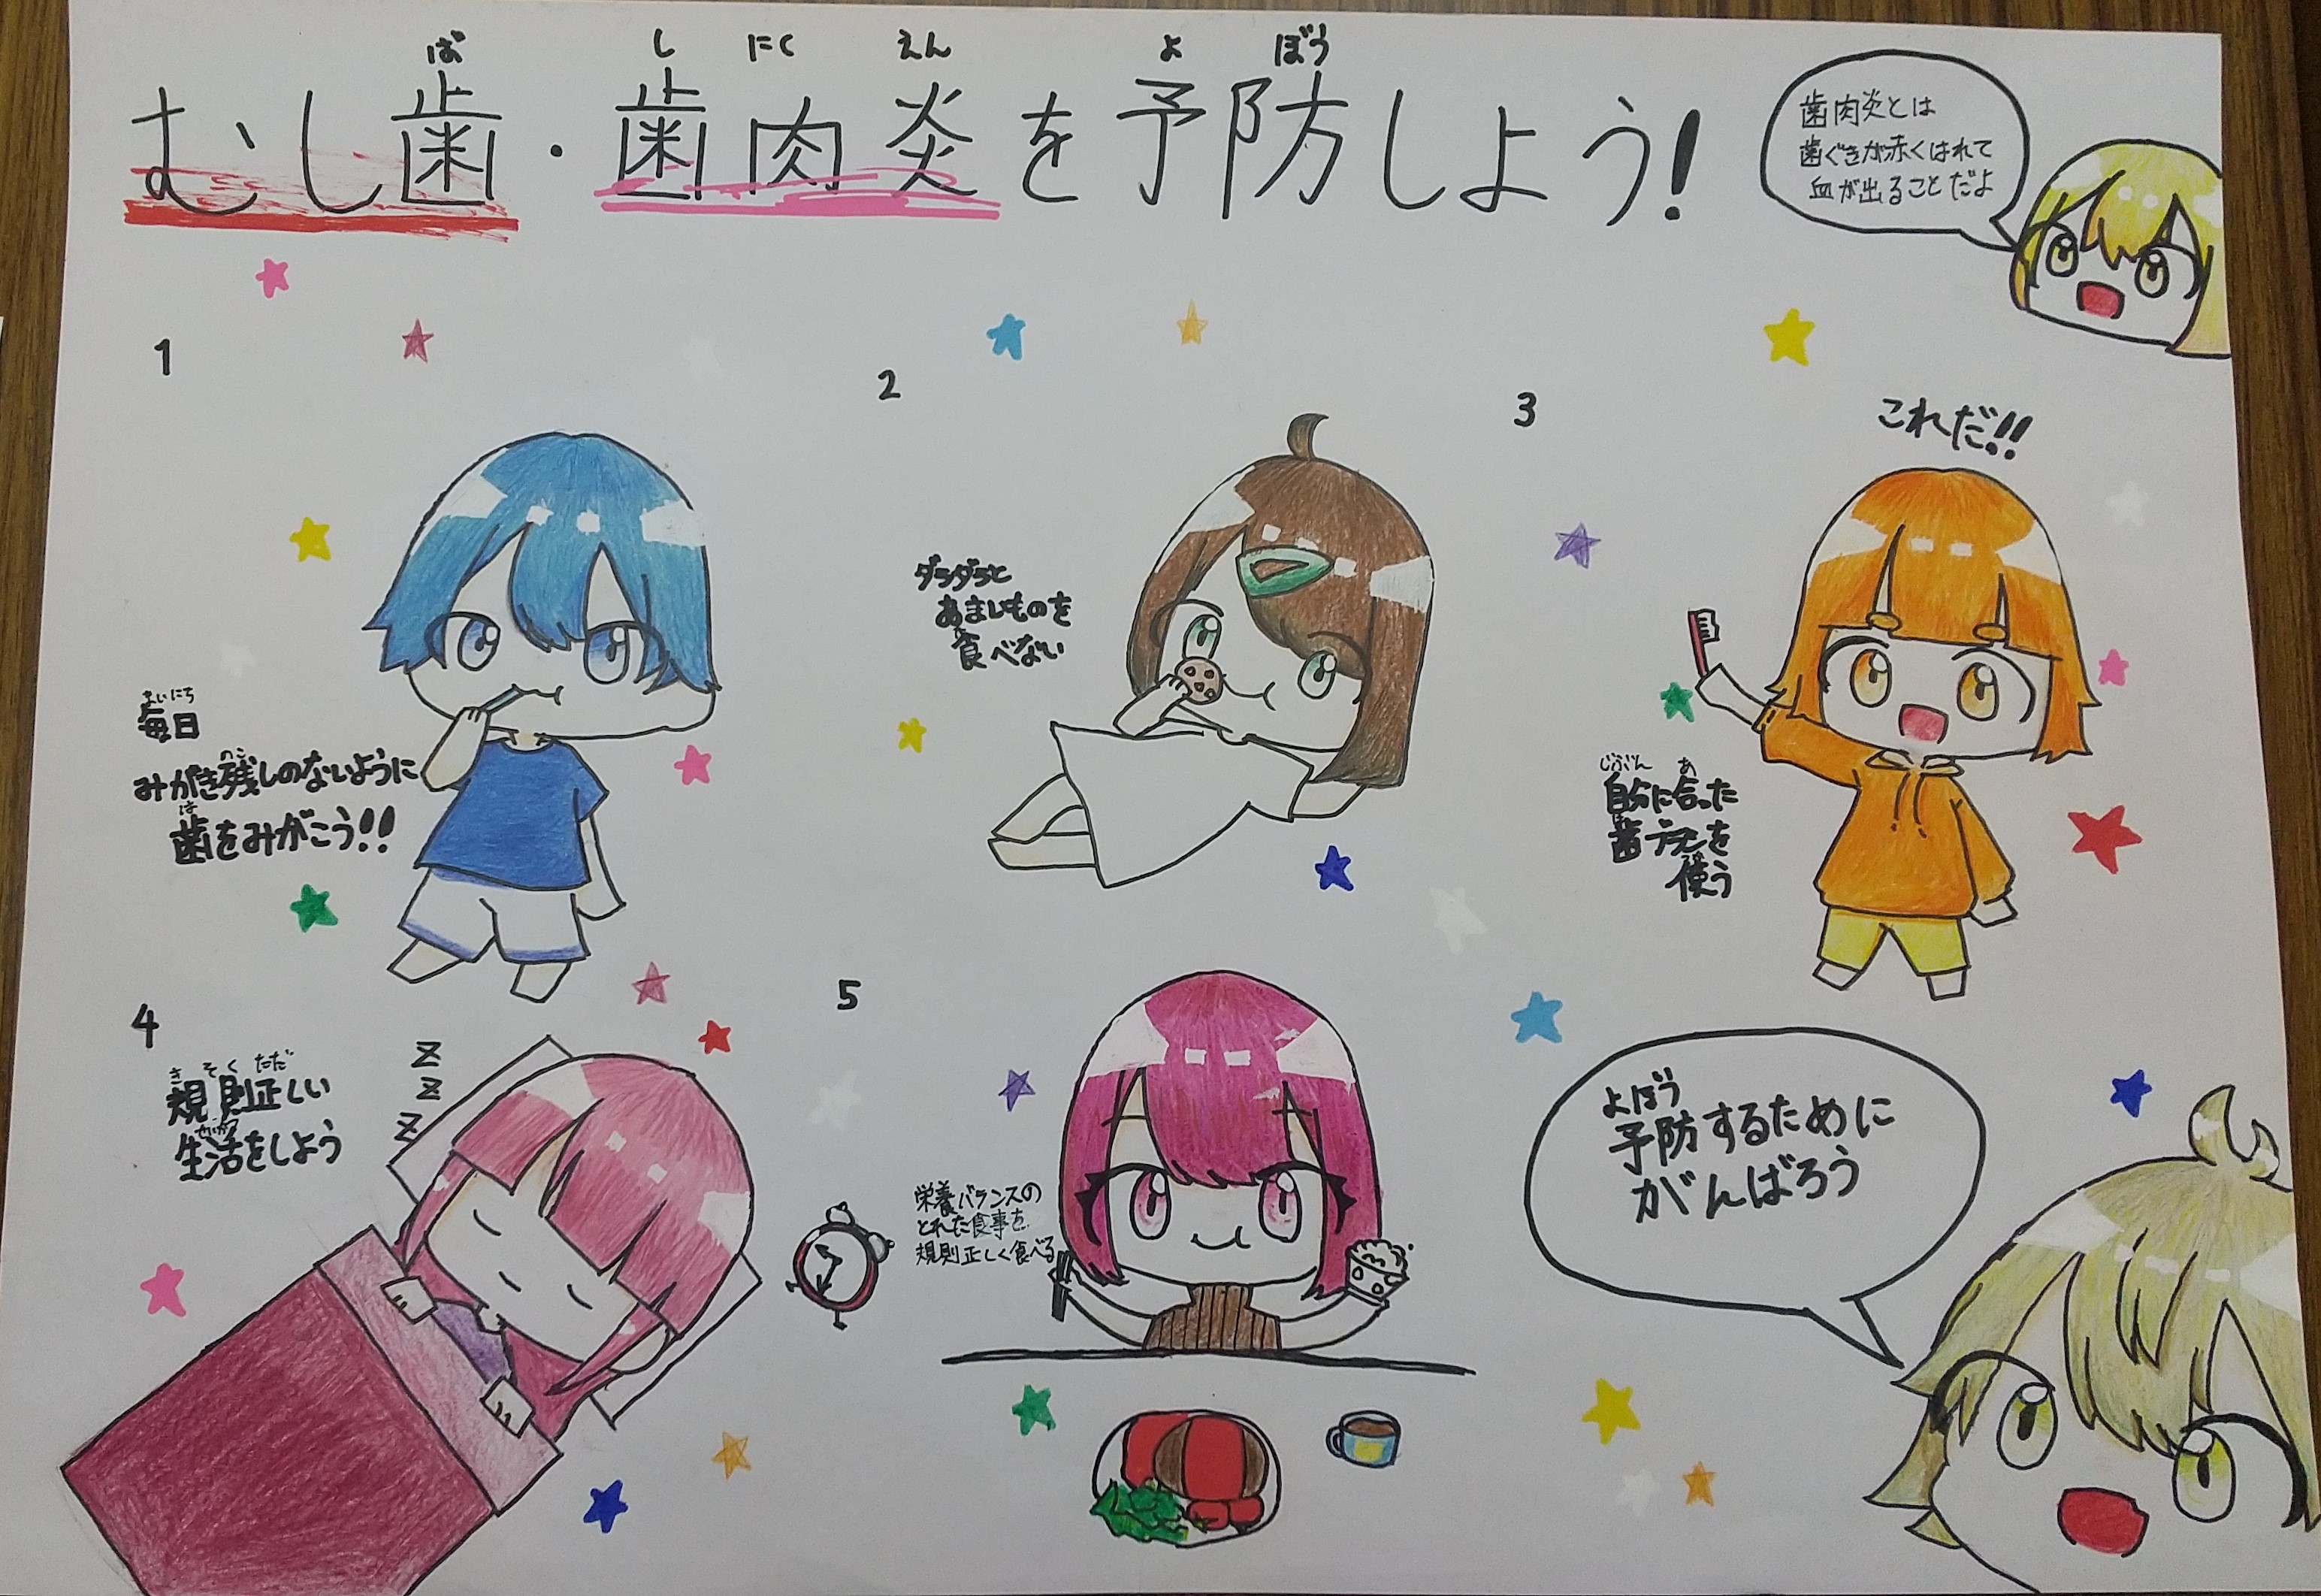 ば し にく えん よ ぼう
むし歯・歯肉炎を予防しよう!
歯肉炎とは
歯ぐきが赤くはれて
血が出ることだよ
1
まいにち
毎日
のこ
みがき残しのないように
は
歯をみがこう!!
2
ダラダラと
あまいものを
た
食べない
3
これだ!!
じぶん あ
自分に合った
は
歯ブラシを
つか
使う
4
き そく ただ
規則正しい
せいかつ
生活をしよう
Z
Z
Z
5
栄養バランスの
とれた食事を
規則正しく食べる
よぼう
予防するために
がんばろう